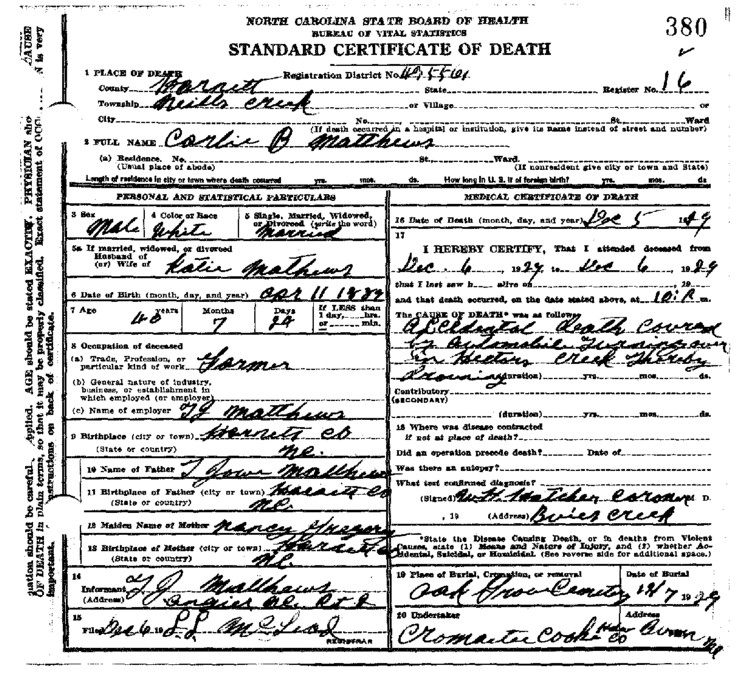 NORTH CAROLINA STATE BOARD OF HEALTH
BUREAU OF VITAL STATISTICS
STANDARD CERTIFICATE OF DEATH
380
1 PLACE OF DEATH
Registration District No.
County Harnett
State
Register No. 16
Township Neills Creek
or Village
or
City
No.
St.
Ward
(If death occurred in a hospital or institution, give its name instead of street and number)
2 FULL NAME Carlie B Matthews
(a) Residence. No.
St.
Ward.
(Usual place of abode)
(If nonresident give city or town and State)
Length of residence in city or town where death occurred yrs. mos. ds. How long in U. S. if of foreign birth? yrs. mos. ds
PERSONAL AND STATISTICAL PARTICULARS
3 Sex
4 Color or Race
5 Single, Married, Widowed, or Divorced (write the word)
Male
White
Married
5a If married, widowed, or divorced
Husband of
(or) Wife of Katie Mathews
6 Date of Birth (month, day, and year) Apr 11
7 Age
years
Months
Days
If LESS than
1 day, hrs.
or min.
7
24
8 Occupation of deceased
(a) Trade, Profession, or
particular kind of work Farmer
(b) General nature of industry,
business, or establishment in
which employed (or employer)
(c) Name of employer TJ Matthews
9 Birthplace (city or town) Harnett Co
(State or country) N.C.
10 Name of Father T Matthews
11 Birthplace of Father (city or town) Harnett Co
(State or country) N.C.
12 Maiden Name of Mother Nancy Gregory
13 Birthplace of Mother (city or town) Harnett Co
(State or country) N.C.
14
Informant T J Matthews
(Address) Angier N.C. Rt 2
15
Filed Dec 6 19 McLeod
REGISTRAR
MEDICAL CERTIFICATE OF DEATH
16 Date of Death (month, day, and year) Dec 5 1929
17
I HEREBY CERTIFY, That I attended deceased from
Dec. 6, 1929 to Dec 6, 1929
that I last saw h alive on , 19
and that death occurred, on the date stated above, at 10 P. m.
The CAUSE OF DEATH* was as follows:
Accidental death Caused
by Automobile Turning over
in Hectors Creek Thereby
Drowning (duration) yrs. mos. ds.
Contributory
(SECONDARY)
(duration) yrs. mos. ds.
18 Where was disease contracted
if not at place of death?
Did an operation precede death? Date of
Was there an autopsy?
What test confirmed diagnosis?
(Signed) Matcher Coroner M D.
, 19 (Address) Buies Creek
*State the Disease Causing Death, or in deaths from Violent
Causes, state (1) Means and Nature of Injury, and (2) whether Ac-
cidental, Suicidal, or Homicidal. (See reverse side for additional space.)
19 Place of Burial, Cremation, or removal
Date of Burial
Oak Grove Cemetery 12/7 1929
20 Undertaker
Address
Cromartie Cooke Co Dunn NC
CAUSE
N is very
PHYSICIAN sho
Exact statement of OCC
AGE should be stated EXACTLY.
so that it may be properly classified.
pplied.
uation should be careful
OF DEATH in plain terms,
structions on back of certificate.
important.